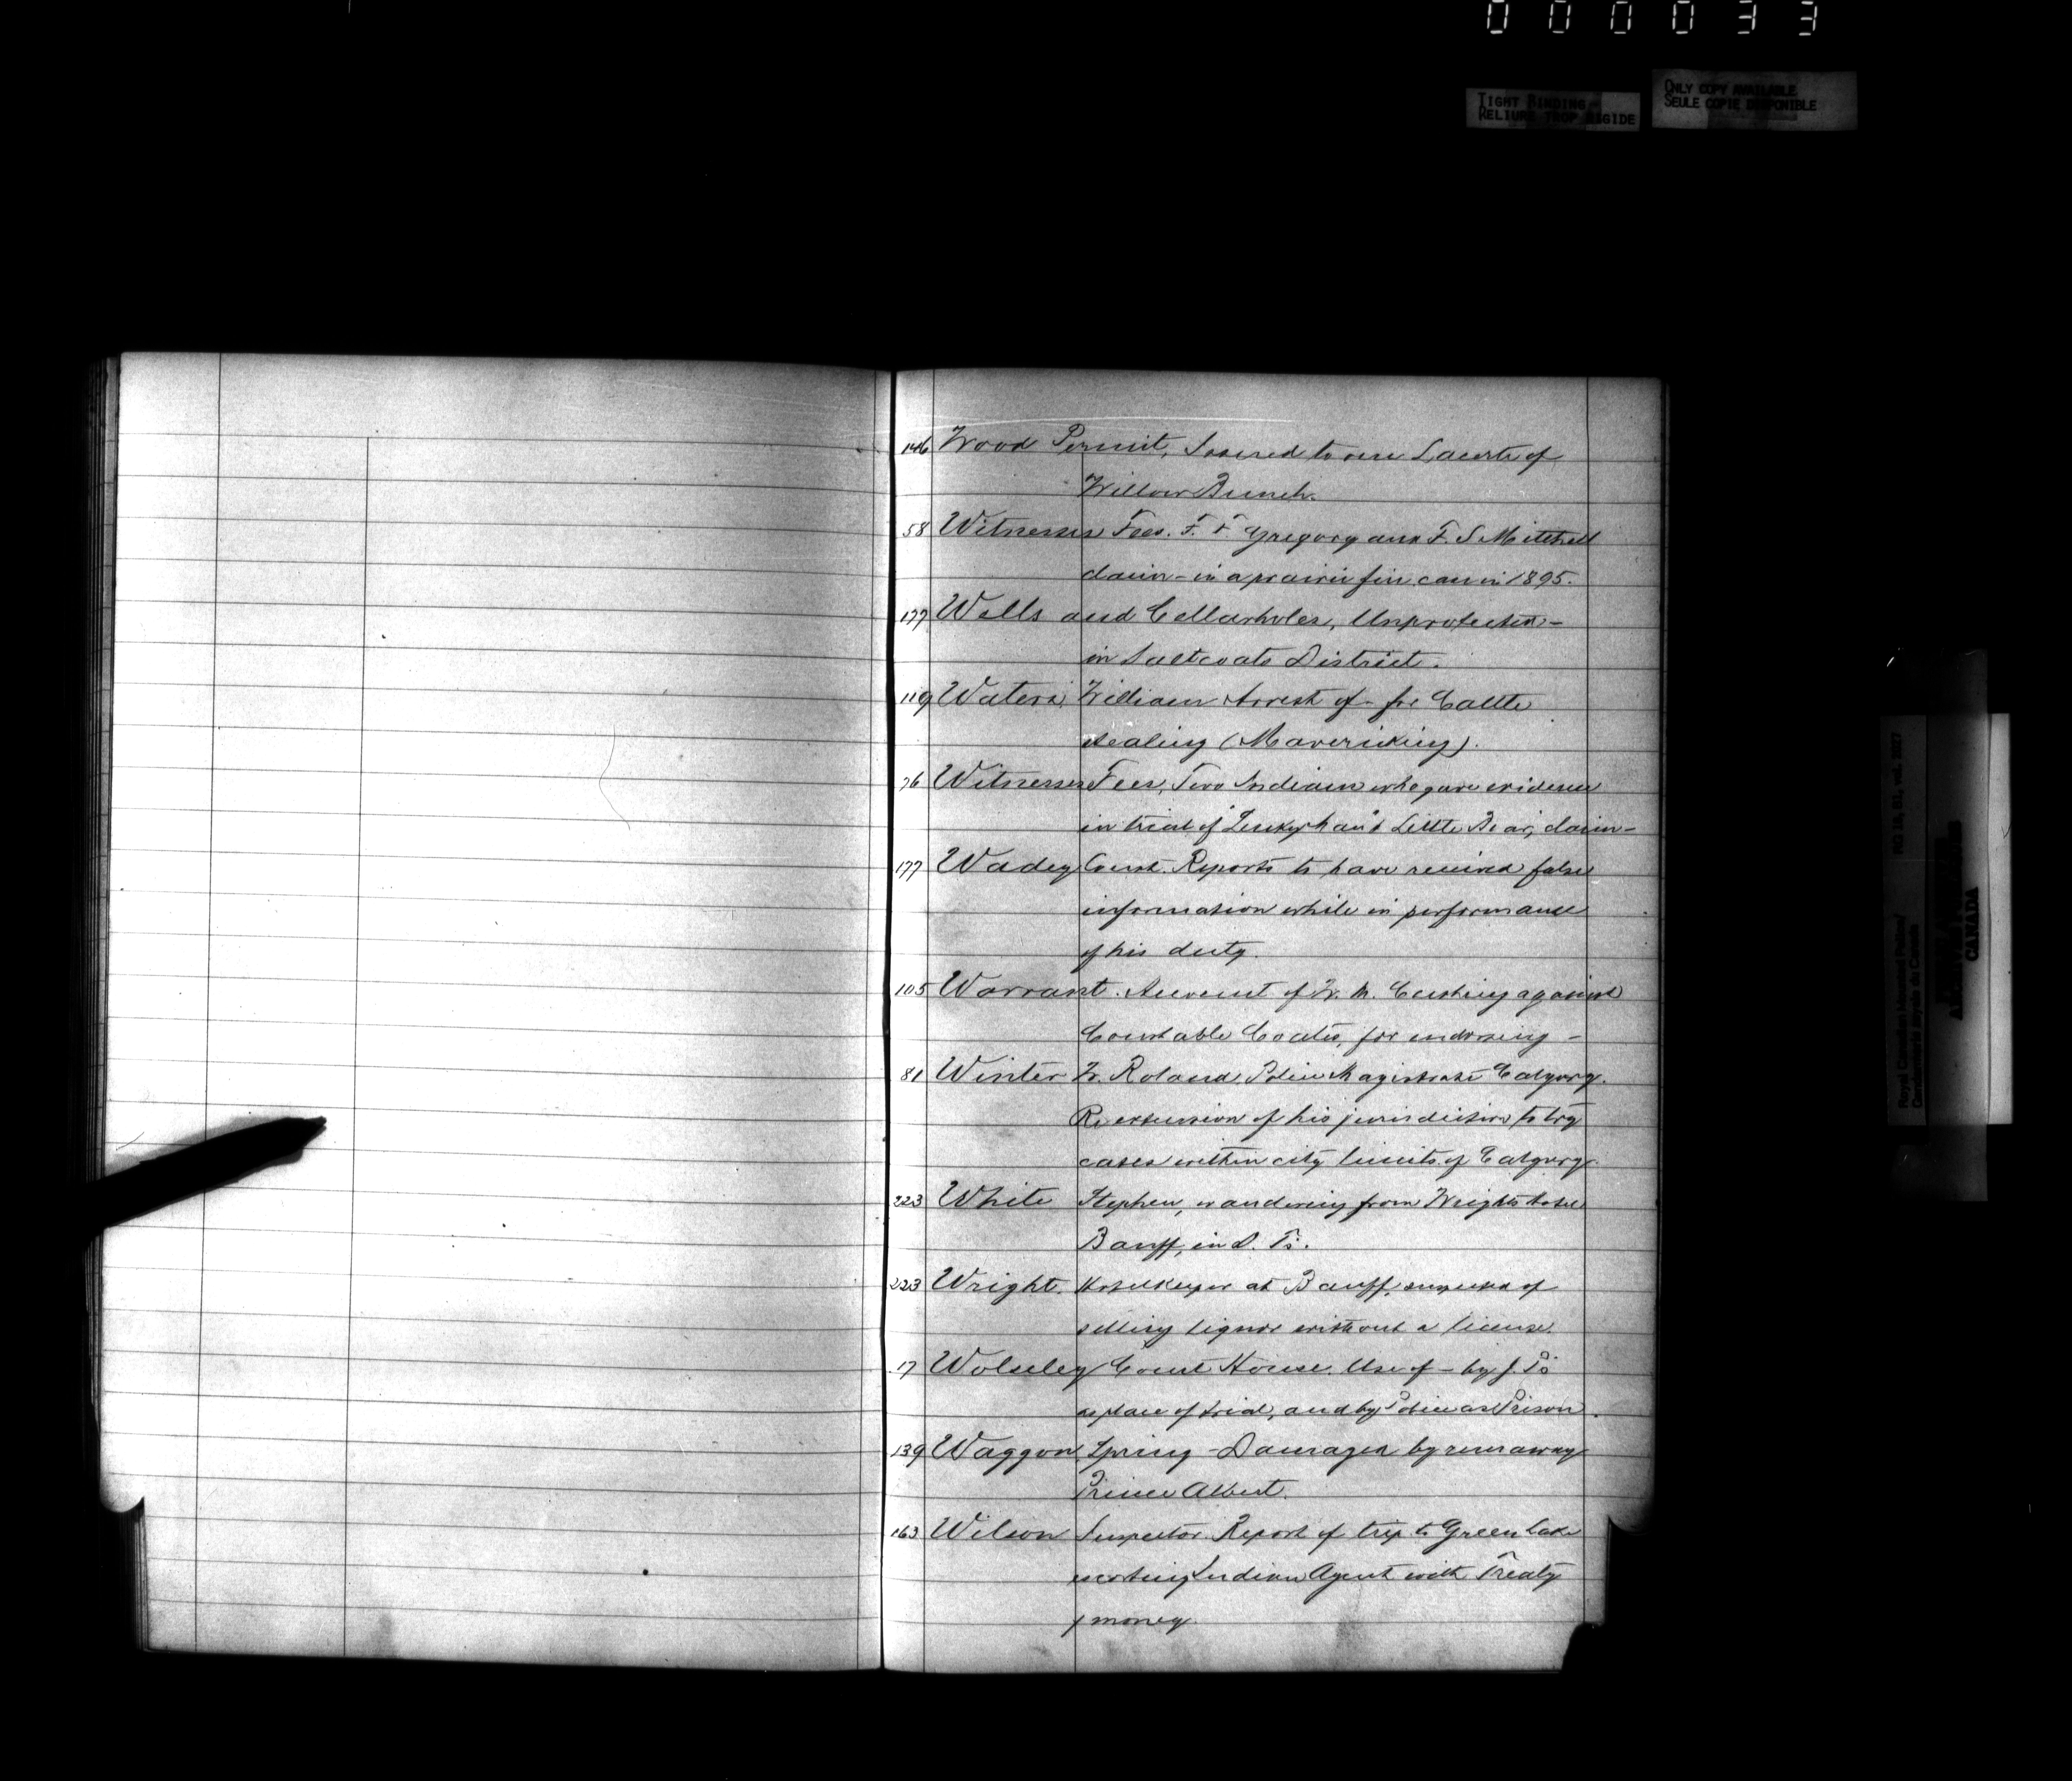 000033
TIGHT BINDING
RELIURE TROP RIGIDE
ONLY COPY AVAILABLE
SEULE COPIE DISPONIBLE
146 Wood Permit, Issued to one Lacerte of
Willow Bunch.
58 Witnesses Fees. F. F. Gregory and F. S. Mitchell
claim - in a prairie fire case in 1895.
177 Wells and Cellarholes, Unprotected -
in Saltcoats District.
119 Waters, William Arrest of - for Cattle
stealing (Mavericking).
76 Witnesses Fees, Two Indians who gave evidence
in trial of Little Bear, claim -
177 Wadey Const. Reports to have received false
information while in performance
of his duty.
105 Warrant. Account of W. H. Cushing against
Constable Coates, for endorsing -
81 Winter W. Roland, Police Magistrate Calgary.
Re extension of his jurisdiction to try
cases within city limits of Calgary.
223 White Stephen, wandering from Wrights hotel
Banff, in D. Ts.
223 Wright. Hotelkeeper at Banff, suspected of
selling liquor without a license.
17 Wolseley Court House. Use of - by J. Ps
as place of trial, and by Police as Prison.
139 Waggon, Spring - Damaged by runaway
Prince Albert.
163 Wilson Inspector. Report of trip to Green Lake
escorting Indian Agent with Treaty
money.
Royal Canadian Mounted Police/
Gendarmerie royale du Canada
RG 18, B1, vol. 3027
ARCHIVES
CANADA